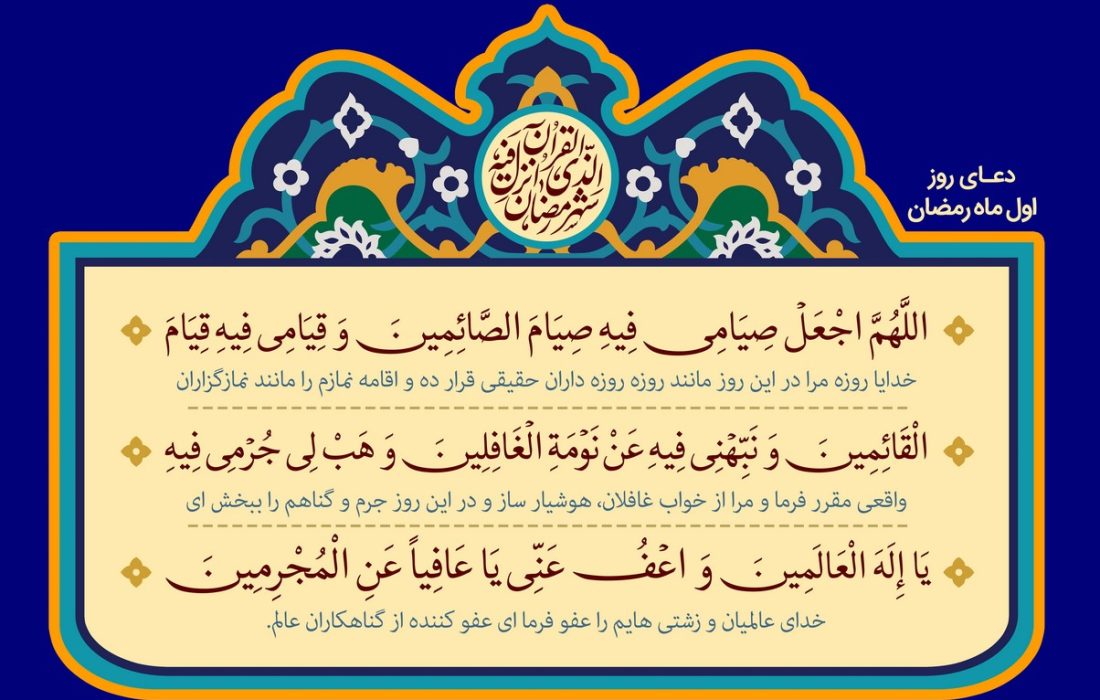 شهر رمضان
الذی انزل فیه
القرآن
دعـای روز
اول ماه رمضان
اللَّهُمَّ اجْعَلْ صِيَامِی فِيهِ صِيَامَ الصَّائِمِينَ وَ قِيَامِی فِيهِ قِيَامَ
خدایا روزه مرا در این روز مانند روزه روزه داران حقیقی قرار ده و اقامه نمازم را مانند نمازگزاران
الْقَائِمِينَ وَ نَبِّهْنِی فِيهِ عَنْ نَوْمَةِ الْغَافِلِينَ وَ هَبْ لِی جُرْمِی فِيهِ
واقعی مقرر فرما و مرا از خواب غافلان، هوشیار ساز و در این روز جرم و گناهم را ببخش ای
يَا إِلَهَ الْعَالَمِينَ وَ اعْفُ عَنِّی يَا عَافِياً عَنِ الْمُجْرِمِينَ
خدای عالمیان و زشتی هایم را عفو فرما ای عفو کننده از گناهکاران عالم.